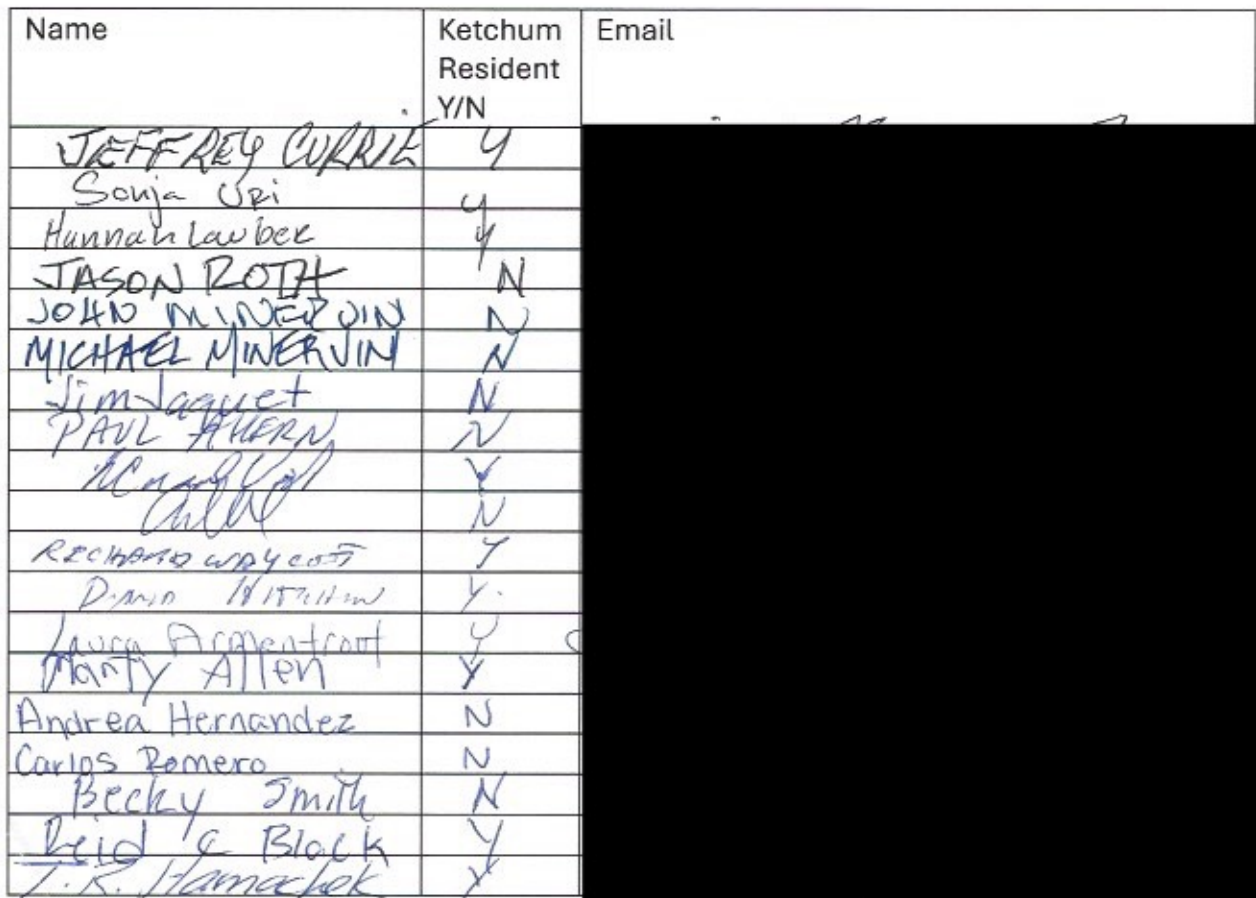 Name Ketchum Resident Y/N Email
JEFFREY CURRIE Y
Sonja Uri y
Hannah Lauber y
JASON ROTH N
JOHN MINERVINI N
MICHAEL MINERVINI N
Jim Jaquet N
PAUL AHERN N
Y
N
RICHARD WAYCOTT Y
DAVID Y.
Laura Armentrout Y
Marty Allen Y
Andrea Hernandez N
Carlos Romero N
Becky Smith N
Reid Block Y
T.R. Hamachek Y